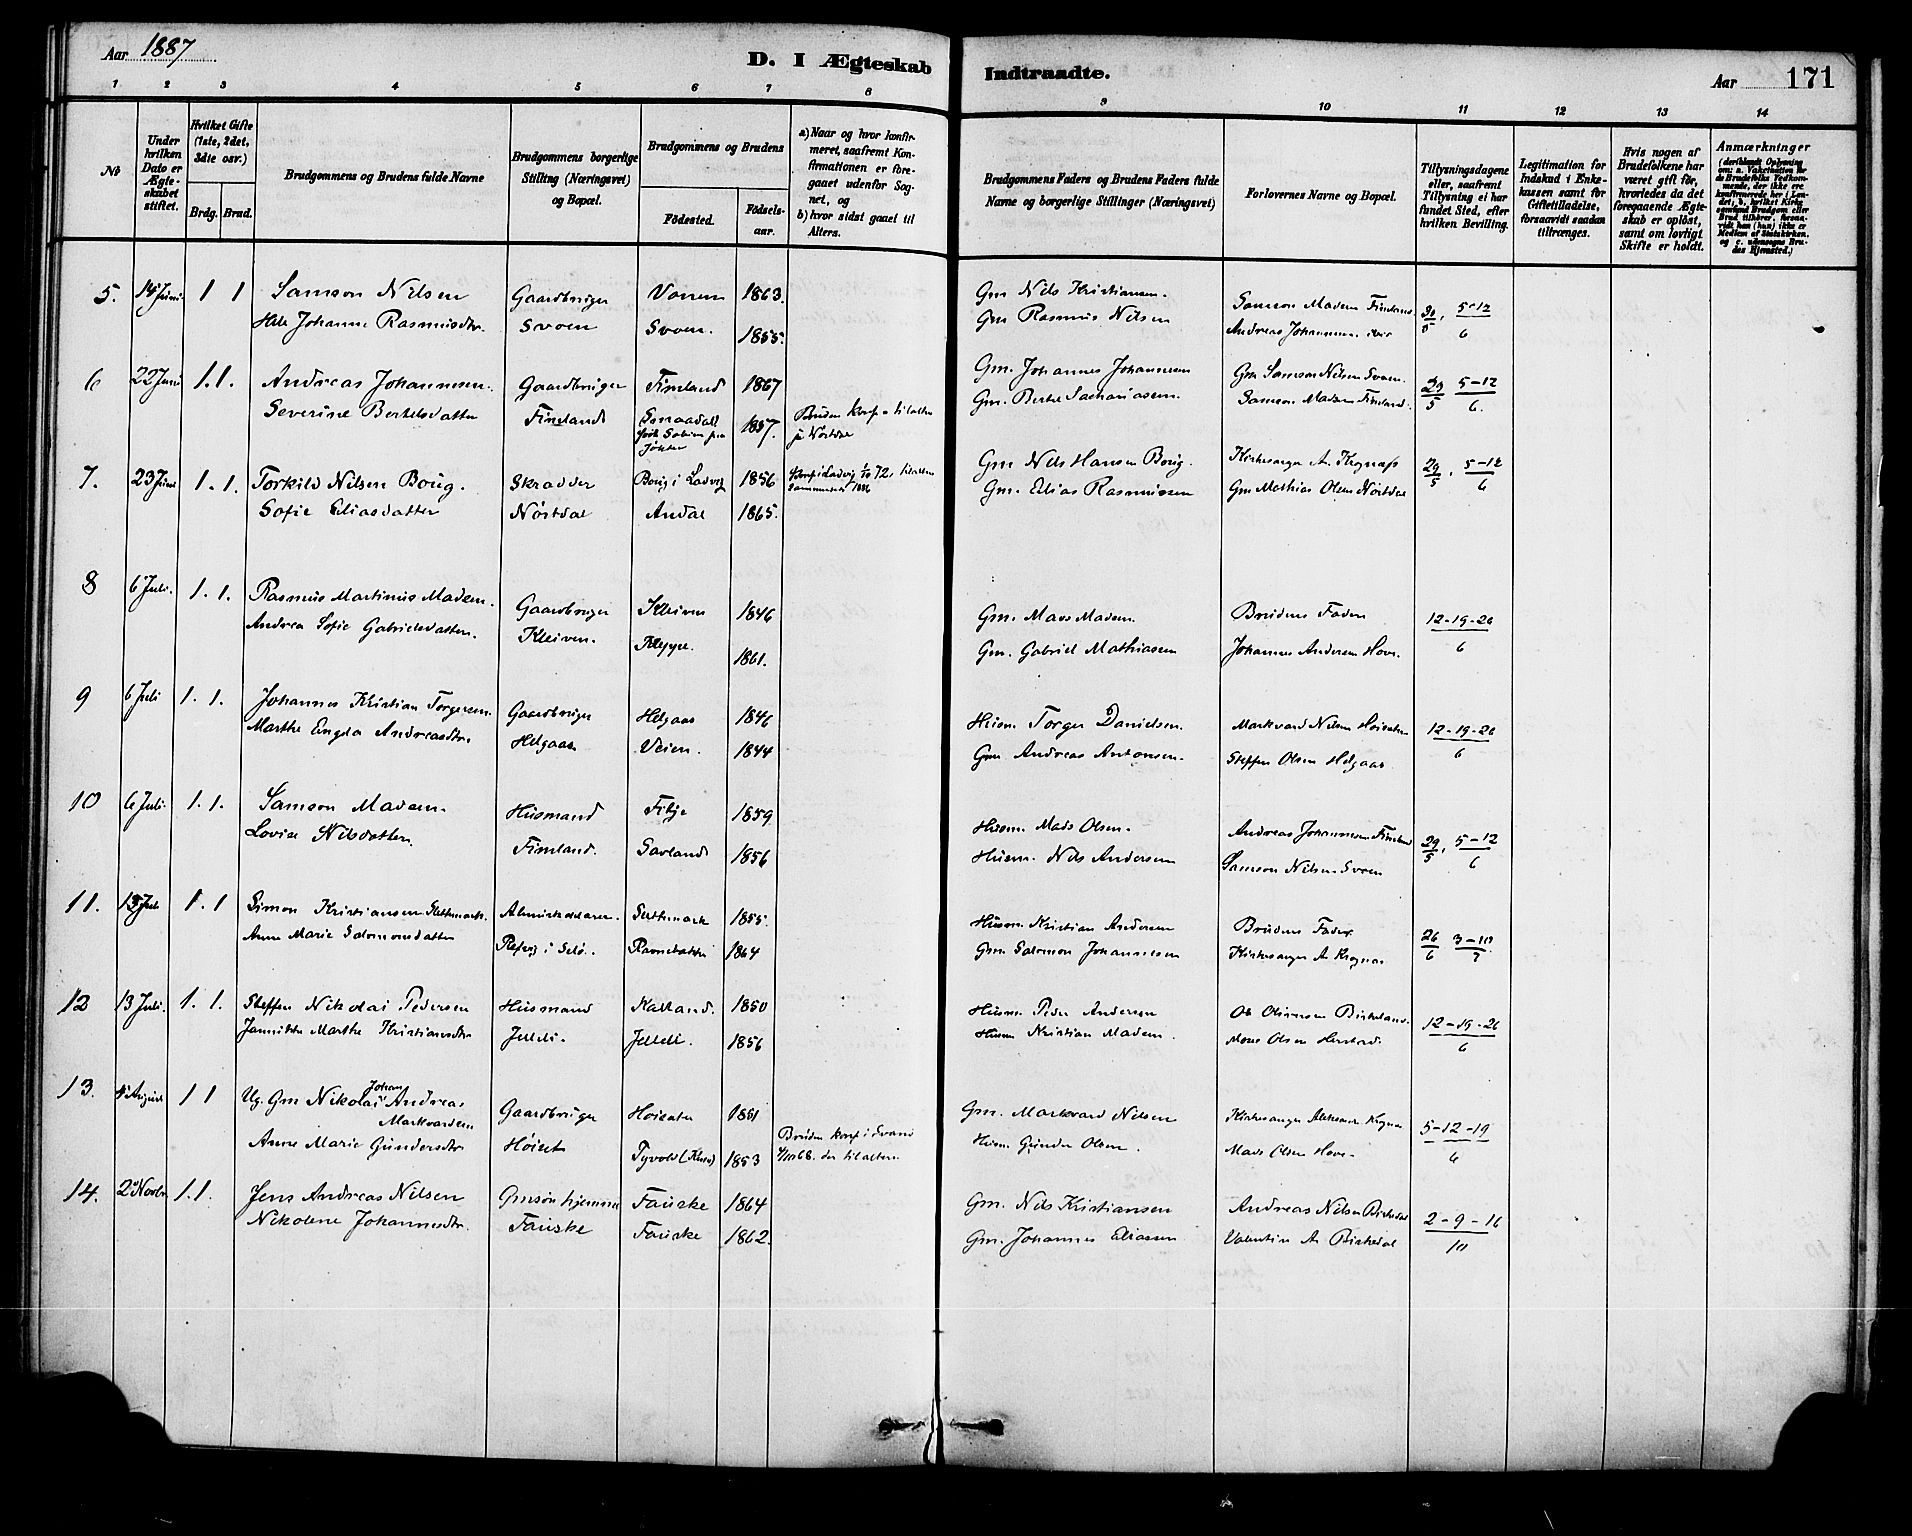 Aar 1887
D. I Ægteskab Indtraadte.
Aar 171
1 2 3 4 5 6 7 8 9 10 11 12 13 14
No
Under hvilken Dato er Ægteskabet stiftet.
Hvilket Gifte (1ste, 2det, 3die osv.)
Brdg. Brud.
Brudgommens og Brudens fulde Navne
Brudgommens borgerlige Stilling (Næringsvei) og Bopæl.
Brudgommens og Brudens
Fødested. Fødselsaar.
a) Naar og hvor konfirmeret, saafremt Konfirmationen er foregaaet udenfor Sognet, og
b) hvor sidst gaaet til Alters.
Brudgommens Faders og Brudens Faders fulde Navne og borgerlige Stillinger (Næringsvei)
Forlovernes Navne og Bopæl.
Tillysningsdagene eller, saafremt Tillysning ei har fundet Sted, efter hvilken Bevilling.
Legitimation for Indskud i Enkekassen samt for Giftetilladelse, forsaavidt saadan tiltrænges.
Hvis nogen af Brudefolkene har været gift før, hvorledes da det foregaaende Ægteskab er opløst, samt om lovligt Skifte er holdt.
Anmærkninger
5. 14 Juni. 1 1 Samson Nilsen Gaardbruger 1863. Gm Nils Kristiansen. Samson Madsen Fimland 29/5, 5-12/6
Johanne Rasmusdtr. Svoen Svoen. 1855. Gm Rasmus Nilsen Andreas Johannesen
6 22 Juni 1. 1. Andreas Johannesen. Gaardbruger Fimland 1867 Gm. Johannes Johannesen Gm Samson Nilsen Svoen. 29/5 5-12/6.
Severine Bertelsdatter Fimland Smaadal 1857. Bruden konf. o til alters Gm. Samson Madsen Fimland.
i Nøstdal
7. 23 Juni 1. 1. Torkild Nilsen Borig. Skradder Borig i Ladvig 1856 Konf i Ladvig 1/10 72, til alters sammesteds 1886 Gm Nils Hansen Borig. Kirkesanger A. Krognæs 29/5, 5-12/6
Sofie Eliasdatter Nøstdal Andal 1865. Gm. Elias Rasmussen Gm Mathias Olsen Nøstdal
8 6 Juli. 1. 1. Rasmus Martinus Madsen. Gaardbruger Kleiven 1846 Gm. Mads Madsen. Brudens Fader 12-19-26/6
Andrea Sofie Gabrielsdatter. Kleiven. Kleppe. 1861. Gm. Gabriel Mathiassen Johannes Andersen Hove.
9 6 Juli 1. 1. Johannes Kristian Torgersen. Gaardbruger Helgaas 1846 Husm. Torger Danielsen. Markvard Nilsen 12-19-26/6
Marthe Engda Andreasdtr. Helgaas Veien. 1844 Gm. Andreas Antonsen. Steffen Olsen Helgaas
10 6 Juli 1. 1. Samson Madsen. Husmand Fitje 1859 Husm. Mads Olsen. Andreas Johannesen Fimland 29/5, 5-12/6
Lovise Nilsdatter. Fimland. Savland 1856 Husm. Nils Andersen Samson Nilsen Svoen
11. 13 Juli 1. 1 Simon Kristiansen 1855. Husm. Kristian Andersen Brudens Fader 26/6 3-10/7
Anne Marie Salomonsdatter 1864 Gm. Salomon Johannesen Kirkesanger A Krognæs
12 13 Juli. 1. 1. Steffen Nikolai Pedersen Husmand 1850 Husm. Peder Andersen Ole Birkeland. 12-19-26/6
Jannikke Marthe Kristiansdtr 1856 Husm Kristian Madsen. Mons Olsen
13. 4 August 1 1 Ug. Gm Nikolai Johan Andreas Markvardsen Gaardbruger Høieset 1861 Gm. Markvard Nilsen Kirkesanger Krognæs 5-12-19/6
Anne Marie Gundersdtr Høiset 1853 Bruden konf. i Svanø 68. der til alters. Husm. Gunder Olsen. Mads Olsen Hove.
14. 2 Novbr 1. 1. Jens Andreas Nilsen Gmsøn hjemme Fauske 1864 Gm. Nils Kristiansen Andreas Nilsen Birkedal 2-9-16/10
Nikolene Johannesdtr. Fauske Fauske 1862. Gm. Johannes Eliassen Valentin A. Birkedal